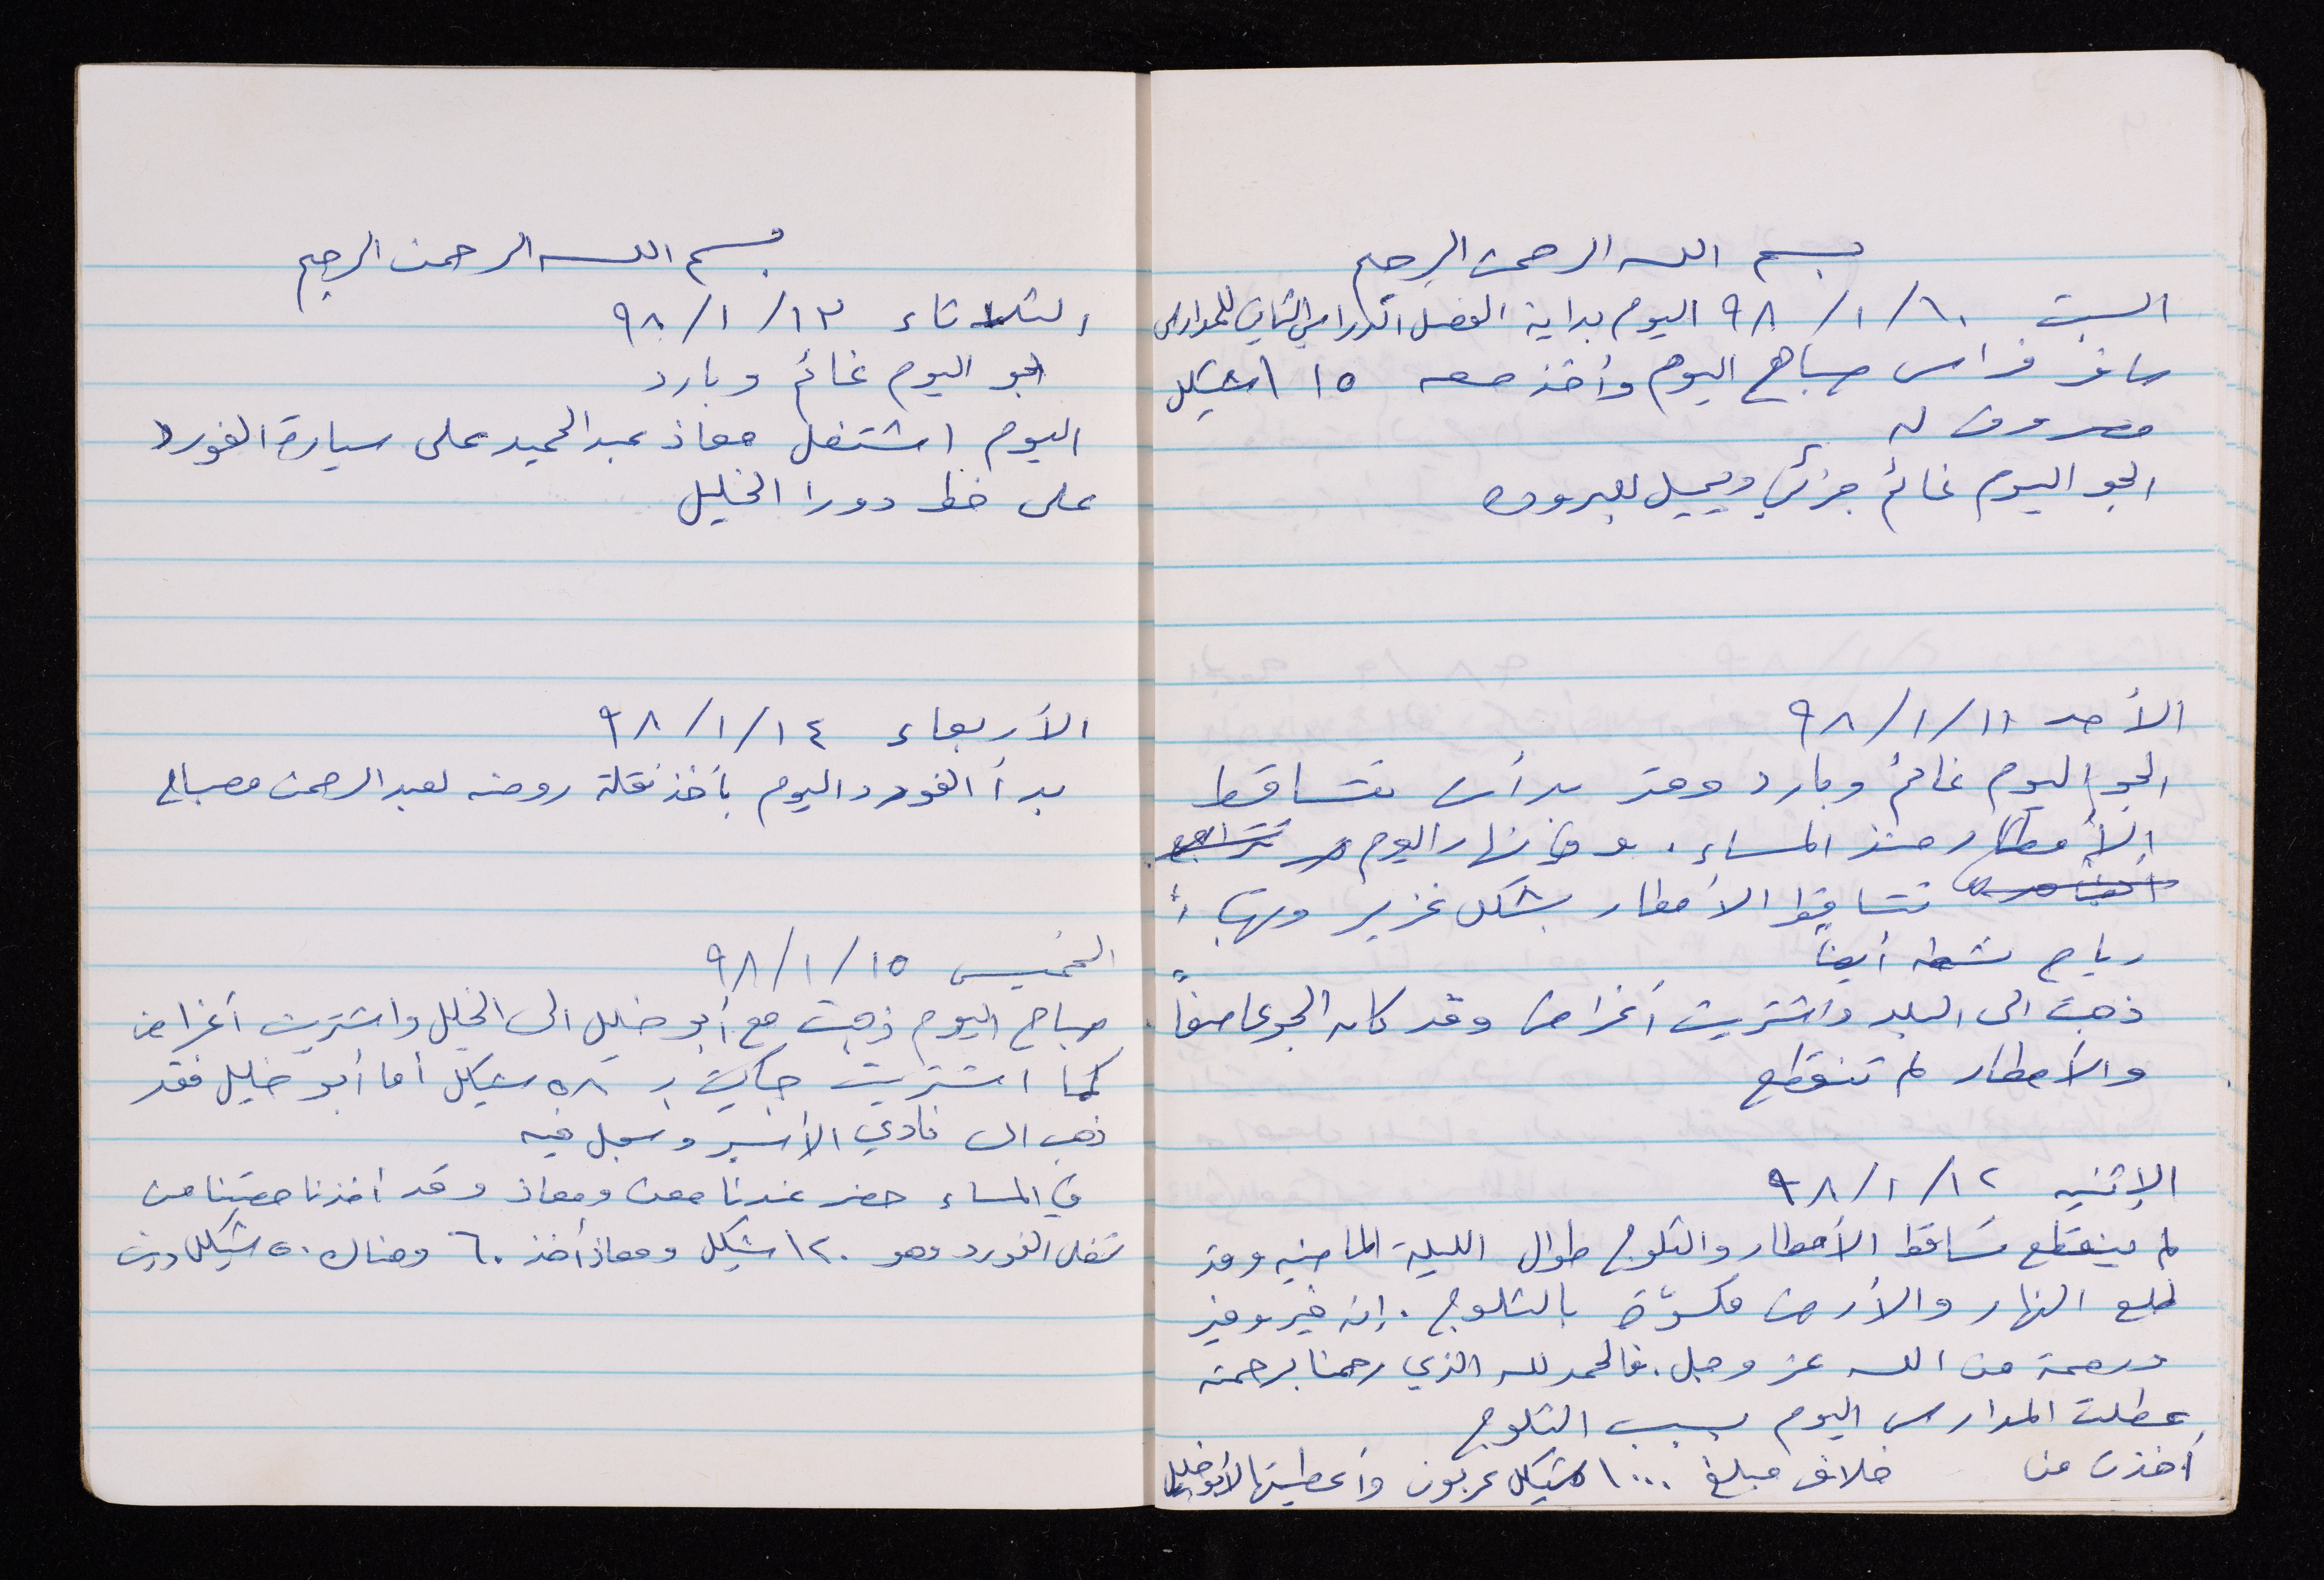 بسم الله الرحمن الرحيم
السبت ١٠/١/٩٨ اليوم بداية الفصل الدراسي الثاني للمدارس
سافر فراس صباح اليوم وأخذ معه ١٥ شيكل
مصروف له
الجو اليوم غائم جزئي ويميل لبرودة
الأحد ١١/١/٩٨
الجو اليوم غائم وبارد وقد بدأت تتساقط
الأمطار منذ المساء. وفي نهار اليوم
تتساقط الأمطار بشكل غزير وتهب
رياح نشطه أيضاً
ذهبت الى البلد واشتريت أغراض وقد كان الجو عاصفاً
والأمطار لم تنقطع
الإثنين ١٢/١/٩٨
لم ينقطع تساقط الأمطار والثلوج طوال الليلة الماضيه وقد
طلع النهار والأرض مكسوّة بالثلوج. إنه خير وفير
ورحمة من الله عز وجل. فالحمد لله الذي رحمنا برحمته
عطلت المدارس اليوم بسبب الثلوج
أخذت من مبلغ ١٠٠٠ شيكل عربون وأعطيتها لأبو خليل
بسم الله الرحمن الرحيم
الثلاثاء ١٣/١/٩٨
الجو اليوم غائم وبارد
اليوم اشتغل معاذ عبد الحميد على سيارة الفورد
على خط دورا الخليل
الأربعاء ١٤/١/٩٨
بدأ الفورد اليوم بأخذ نقلة روضه لعبد الرحمن مصباح
الخميس ١٥/١/٩٨
صباح اليوم ذهبت مع أبو خليل الى الخليل واشتريت أغراض
كما اشتريت جاكيت بـ ٥٨ شيكل أما أبو خليل فقد
ذهب الى نادي الأسير وسجل فيه
في المساء حضر عندنا معن ومعاذ وقد أخذنا حصتنا من
شغل الفورد وهو ١٢٠ شيكل ومعاذ أخذ ٦٠ وهناك ٥٠ شيكل دين